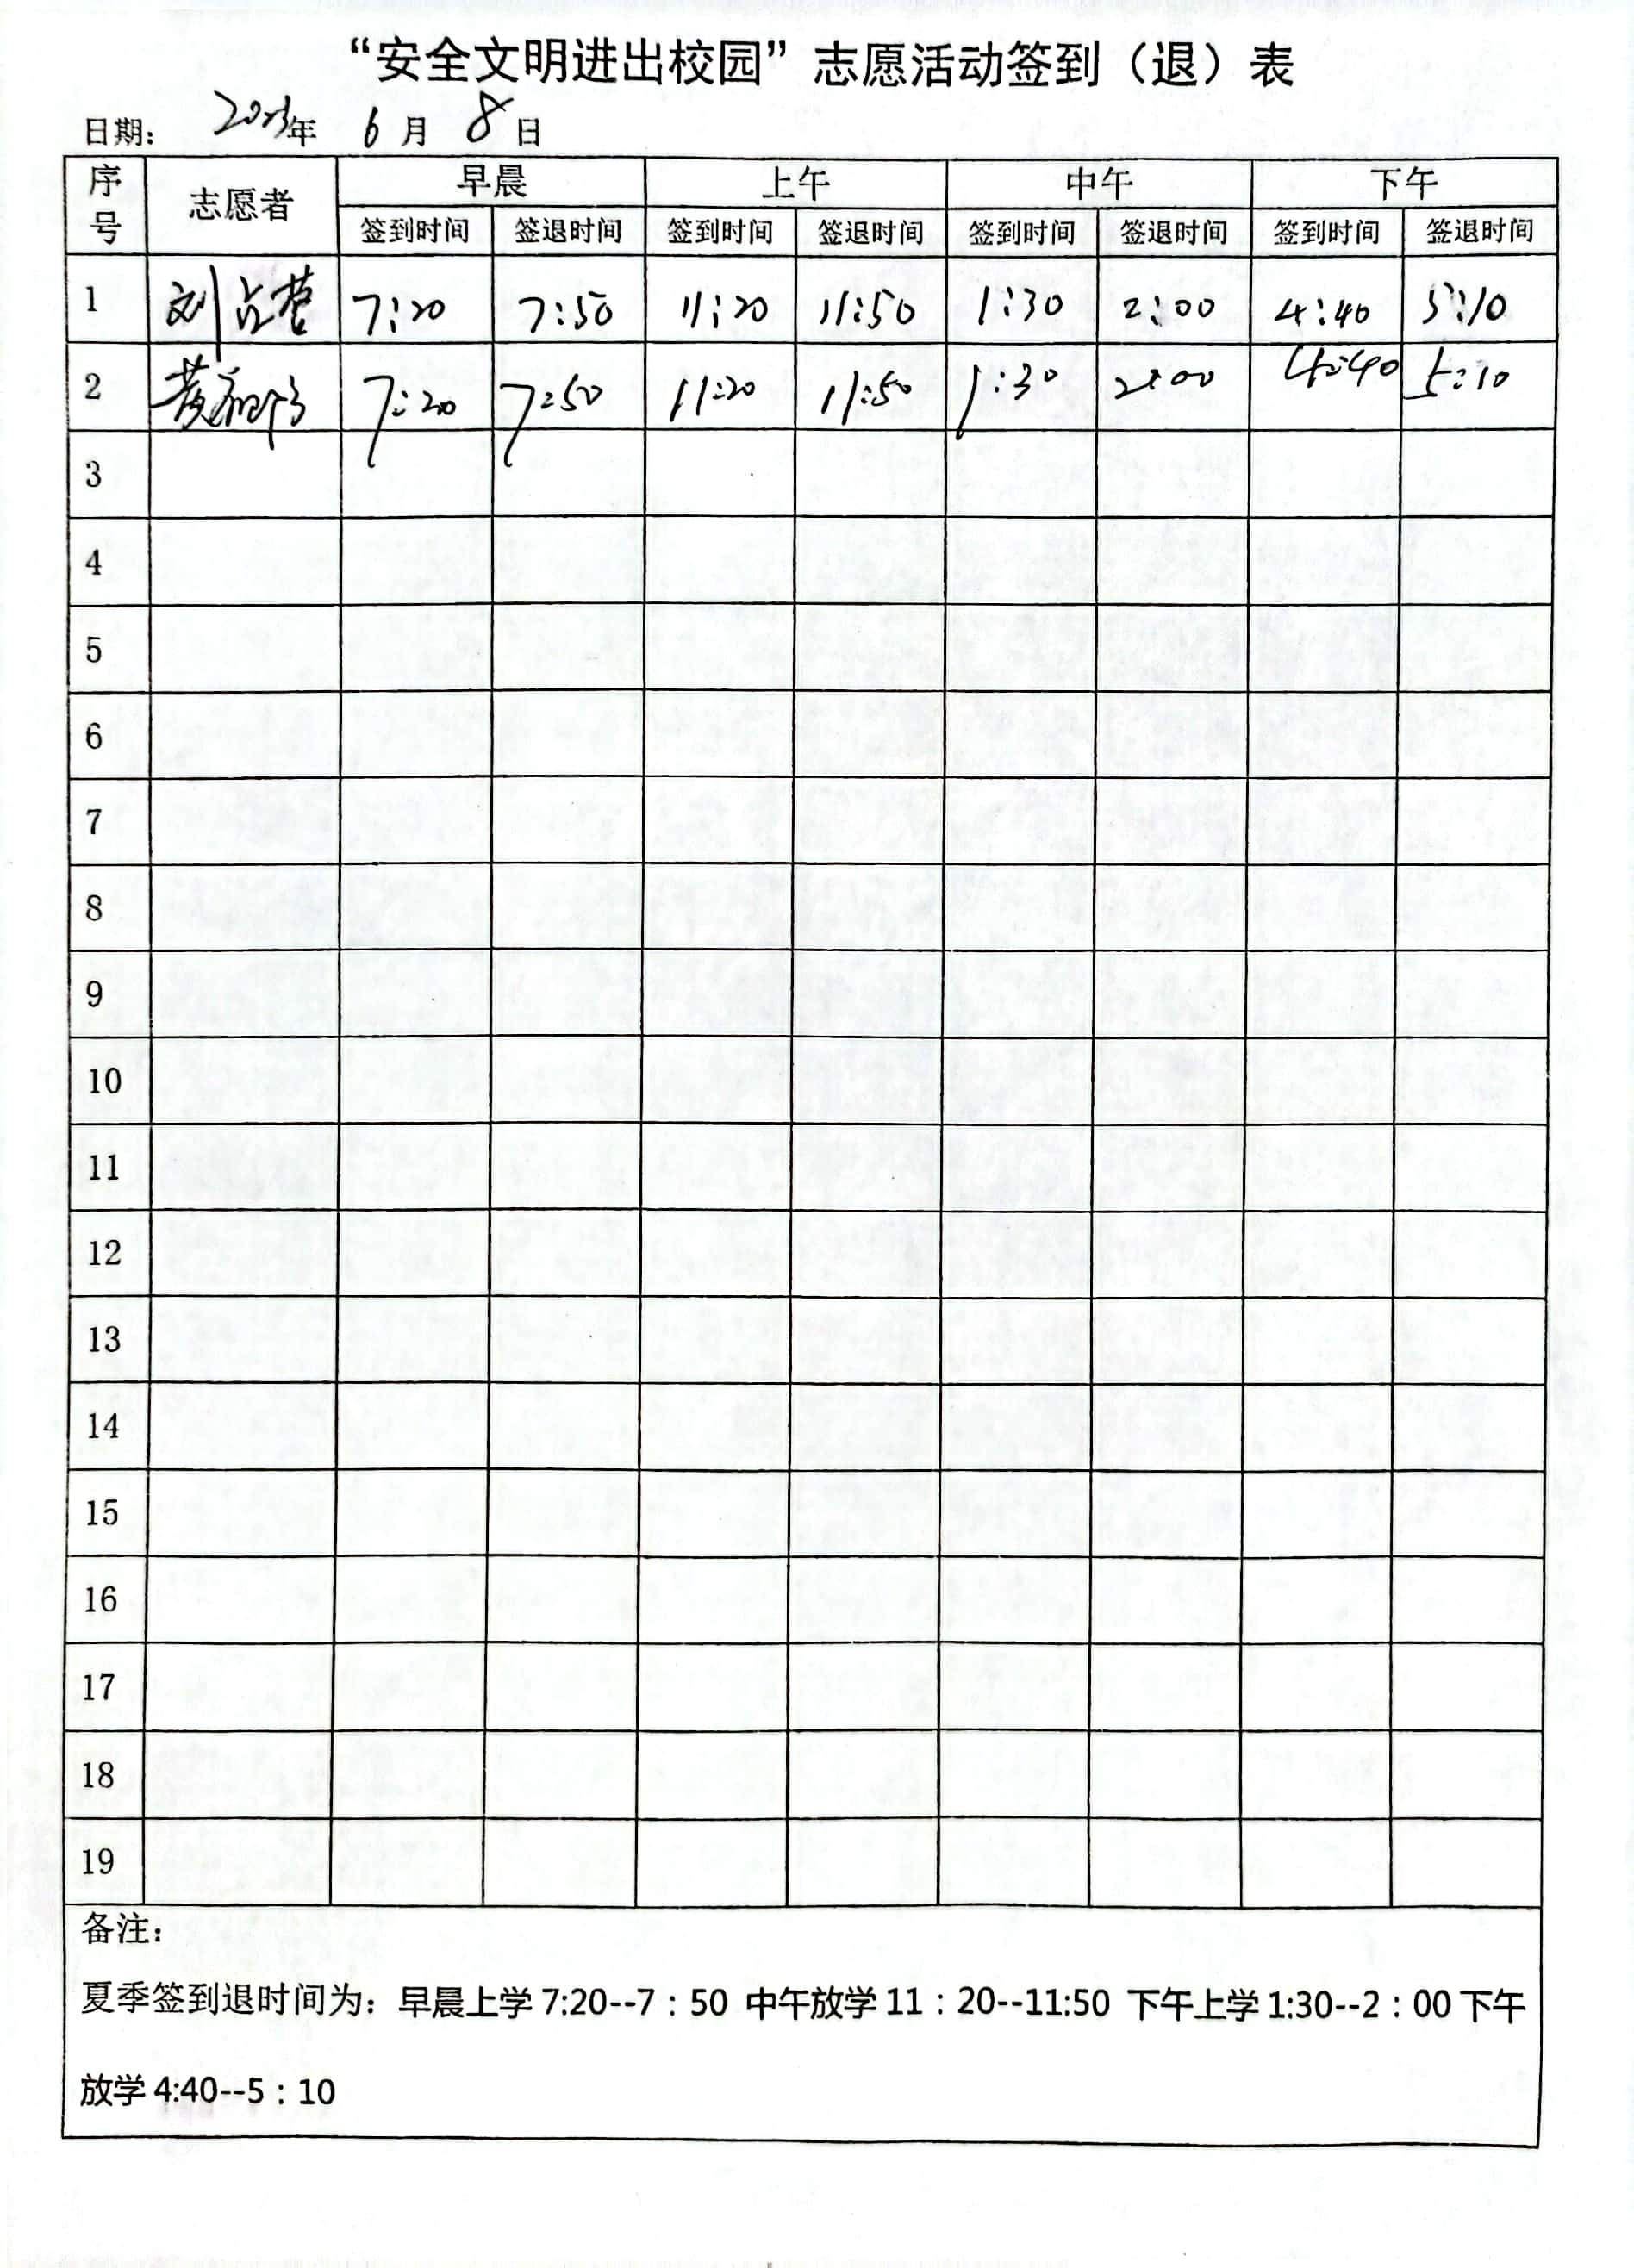 “安全文明进出校园”志愿活动签到（退）表
日期： 2023年 6月 8日
序号 志愿者 早晨 上午 中午 下午
签到时间 签退时间 签到时间 签退时间 签到时间 签退时间 签到时间 签退时间
1 刘 7:20 7:50 11:20 11:50 1:30 2:00 4:40 5:10
2 黄 7:20 7:50 11:20 11:50 1:30 2:00 4:40 5:10
3
4
5
6
7
8
9
10
11
12
13
14
15
16
17
18
19
备注：
夏季签到退时间为：早晨上学 7:20--7：50 中午放学 11：20--11:50 下午上学 1:30--2：00 下午
放学 4:40--5：10